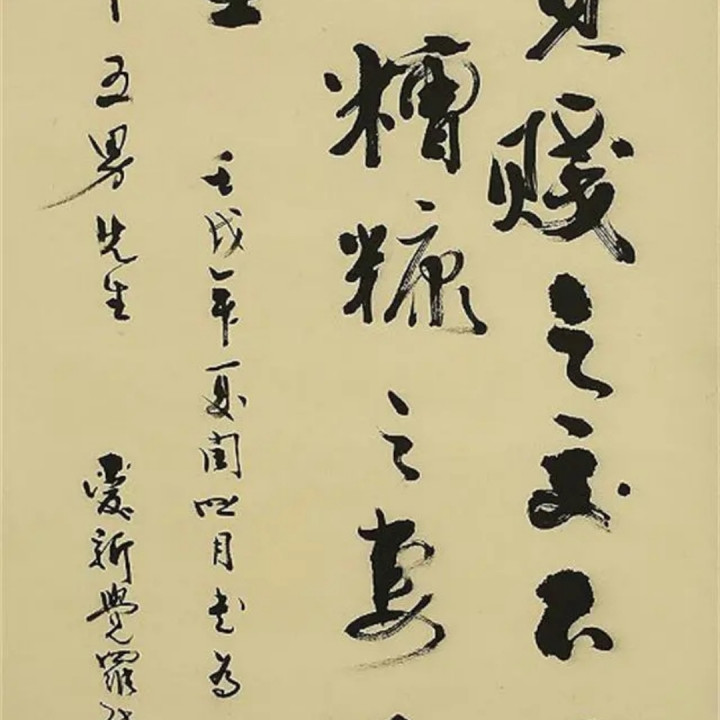 賤之交不
糟糠之妻
壬戌年夏閏四月書為
五男先生 愛新覺羅